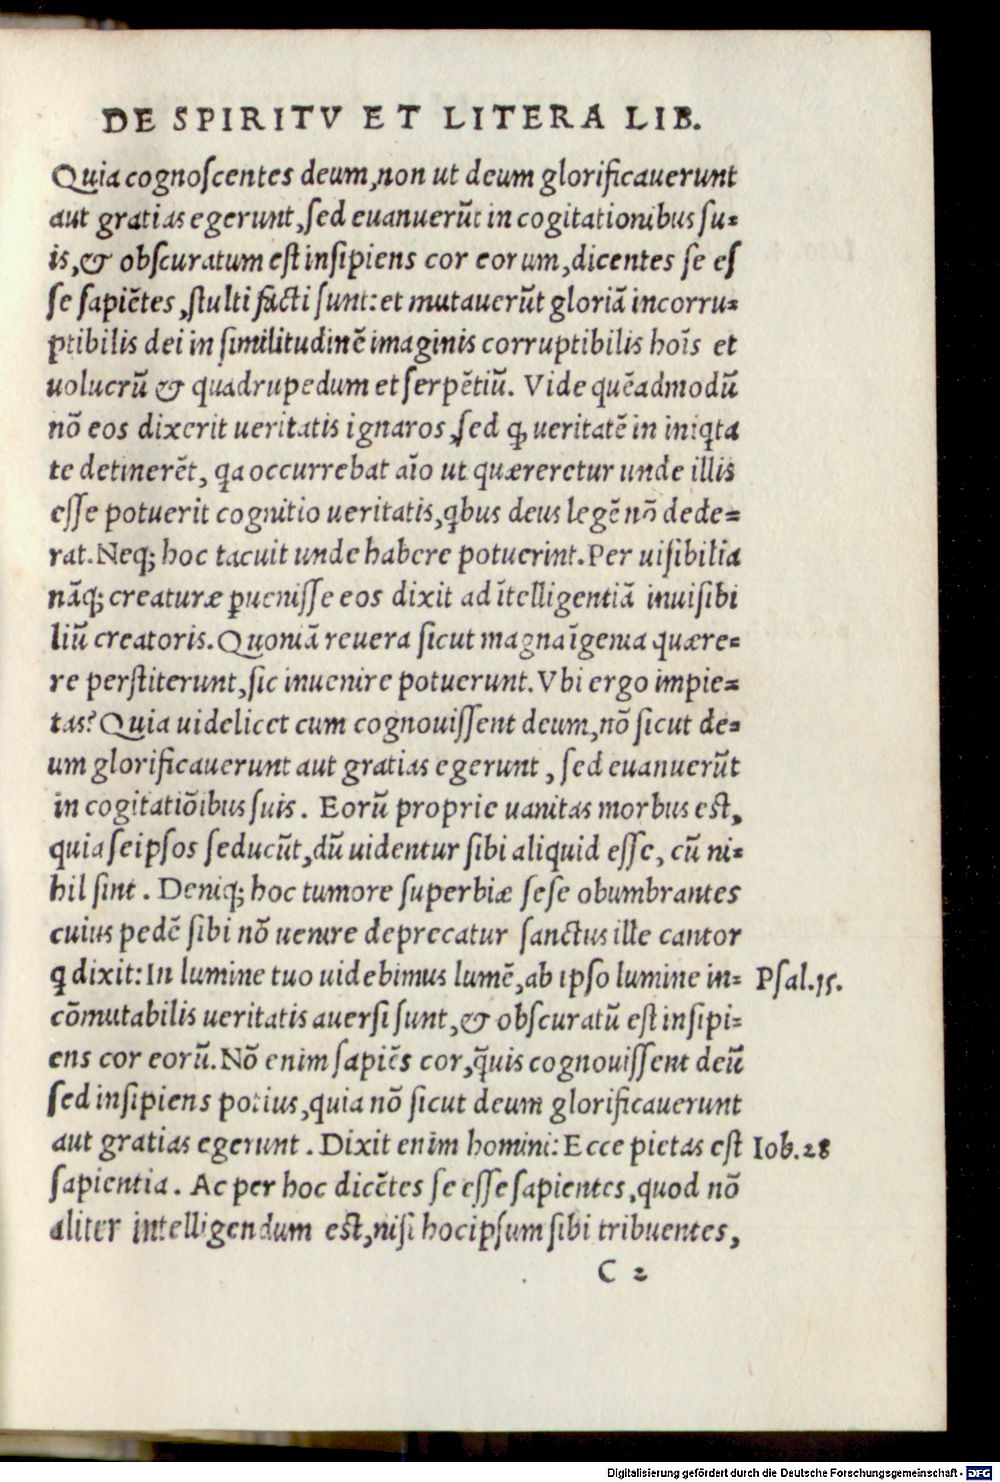 DE SPIRITV ET LITERA LIB.
Quia cognoscentes deum, non ut deum glorificauerunt
aut gratias egerunt, sed euanuerũt in cogitationibus su=
is, & obscuratum est insipiens cor eorum, dicentes se es
se sapiẽtes, stulti facti sunt: et mutauerũt gloriã incorru=
ptibilis dei in similitudinẽ imaginis corruptibilis hoĩs et
uolucrũ & quadrupedum et serpẽtiũ. Vide quẽadmodũ
nõ eos dixerit ueritatis ignaros, sed ꝙ ueritatẽ in iniꝗta
te detinerẽt, ꝗa occurrebat aĩo ut quæreretur unde illis
esse potuerit cognitio ueritatis, ꝗbus deus legẽ nõ dede=
rat. Neqꝫ hoc tacuit unde habere potuerint. Per uisibilia
nãqꝫ creaturæ ꝑuenisse eos dixit ad ĩtelligentiã inuisibi
liũ creatoris. Quoniã reuera sicut magna ĩgenia quære=
re perstiterunt, sic inuenire potuerunt. Vbi ergo impie=
tas? Quia uidelicet cum cognouissent deum, nõ sicut de=
um glorificauerunt aut gratias egerunt, sed euanuerũt
in cogitatiõibus suis. Eorũ proprie uanitas morbus est,
quia seipsos seducũt, dũ uidentur sibi aliquid esse, cũ ni=
hil sint. Deniqꝫ hoc tumore superbiæ sese obumbrantes
cuius pedẽ sibi nõ uenire deprecatur sanctus ille cantor
ꝗ dixit: In lumine tuo uidebimus lumẽ, ab ipso lumine in= Psal.35.
cõmutabilis ueritatis auersi sunt, & obscuratũ est insipi=
ens cor eorũ. Nõ enim sapiẽs cor, q̃uis cognouissent deũ
sed insipiens potius, quia nõ sicut deum glorificauerunt
aut gratias egerunt. Dixit enim homini: Ecce pietas est Iob.28
sapientia. Ac per hoc dicẽtes se esse sapientes, quod nõ
aliter intelligendum est, nisi hocipsum sibi tribuentes,
C 2
Digitalisierung gefördert durch die Deutsche Forschungsgemeinschaft - DFG